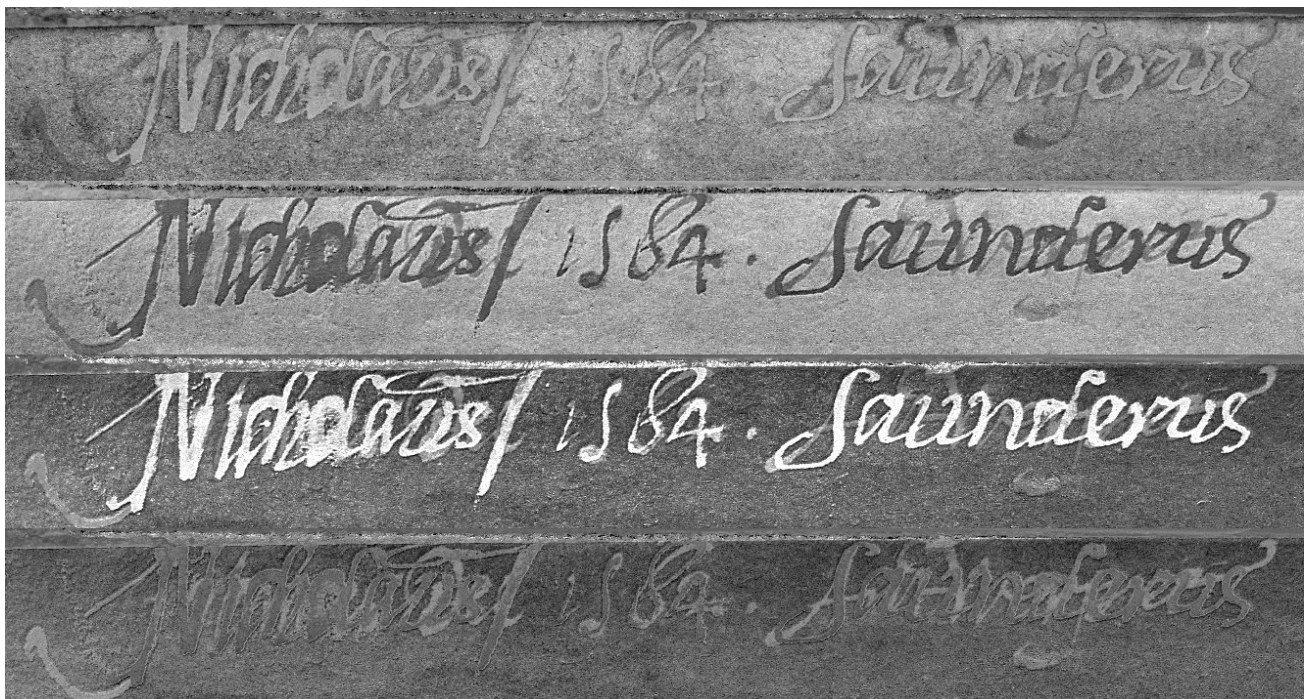 Nicholaus 1564. Saunderus
Nicholaus 1564. Saunderus
Nicholaus 1564. Saunderus
Nicholaus 1564. Saunderus